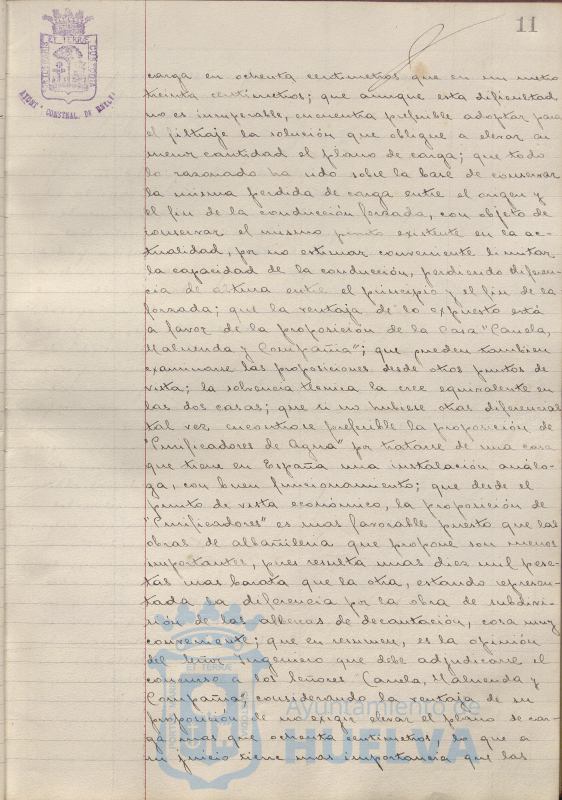 11
PORTUS MARIS ET TERRÆ CUSTODIA
AYUNT. CONSTNAL. DE HUELVA
carga en ochenta centímetros que en un metro
treinta centímetros; que aunque esta dificultad
no es insuperable, encuentra preferible adoptar para
el filtraje la solución que obligue a elevar en
menor cantidad el plano de carga; que todo
lo razonado ha sido sobre la base de conservar
la misma perdida de carga entre el origen y
el fin de la conducción forzada, con objeto de
conservar el mismo punto existente en la ac-
tualidad, por no estimar conveniente limitar
la capacidad de la conducción, perdiendo diferen-
cia de altura entre el principio y el fin de la
forzada; que la ventaja de lo expuesto está
a favor de la proposición de la Casa "Canela,
Maluenda y Compañia"; que pueden tambien
examinarse las proposiciones desde otros puntos de
vista; la solvencia técnica la cree equivalente en
las dos casas; que si no hubiese otras diferencias
tal vez encontrose preferible la proposición de
"Purificadores de Agua" por tratarse de una casa
que tiene en España una instalación análo-
ga, con buen funcionamiento; que desde el
punto de vista económico, la proposición de
"Purificadores" es mas favorable puesto que las
obras de albañilería que propone son menos
importantes, pues resulta unas diez mil pese-
tas mas barata que la otra, estando represen-
tada la diferencia por la obra de subdivi-
sión de las albercas de decantación, cosa muy
conveniente; que en resumen, es la opinión
del Señor Ingeniero que debe adjudicarse el
concurso a los Señores Canela, Maluenda y
Compañia, considerando la ventaja de su
proposición de no exigir elevar el plano de car-
ga mas que ochenta centímetros, lo que a
su juicio tiene mas importancia que las
Ayuntamiento de
HUELVA